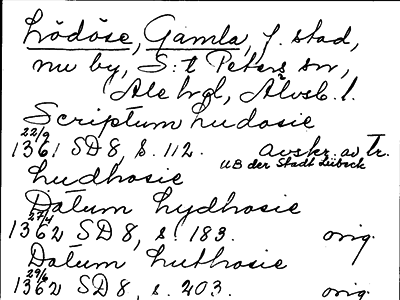 Lödöse, Gamla, f. stad,
nu by, S:t Peters sn,
Ale hd, Älvsb. l.
Scriptum ludosie
22/9
1361 SD 8, s. 112. avskr. av Tr.
UB der Stadt Lübeck
Ludhosie
Datum lydhosie
27/4
1362 SD 8, s. 183. orig.
Datum luthosie
29/6
1362 SD 8, s. 203. orig.